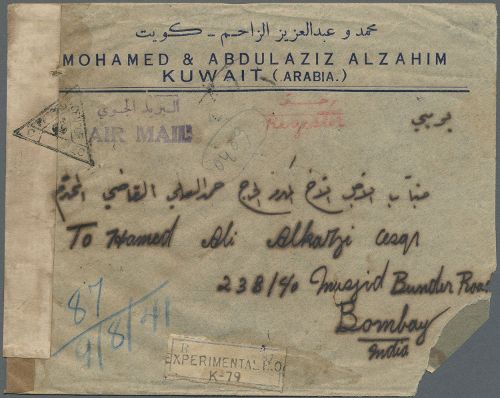 محمد و عبدالعزيز الزاحم - كويت
MOHAMED & ABDULAZIZ ALZAHIM
KUWAIT (ARABIA.)
البريد الجوي
AIR MAIL
Register
بومبي
جناب الأجل حمد العلي القاضي المحترم
To Hamed Ali Alkazi esqr
238/40 Musjid Bunder Road
Bombay
India
87
9/8/41
R
EXPERIMENTAL P.O.
K-79